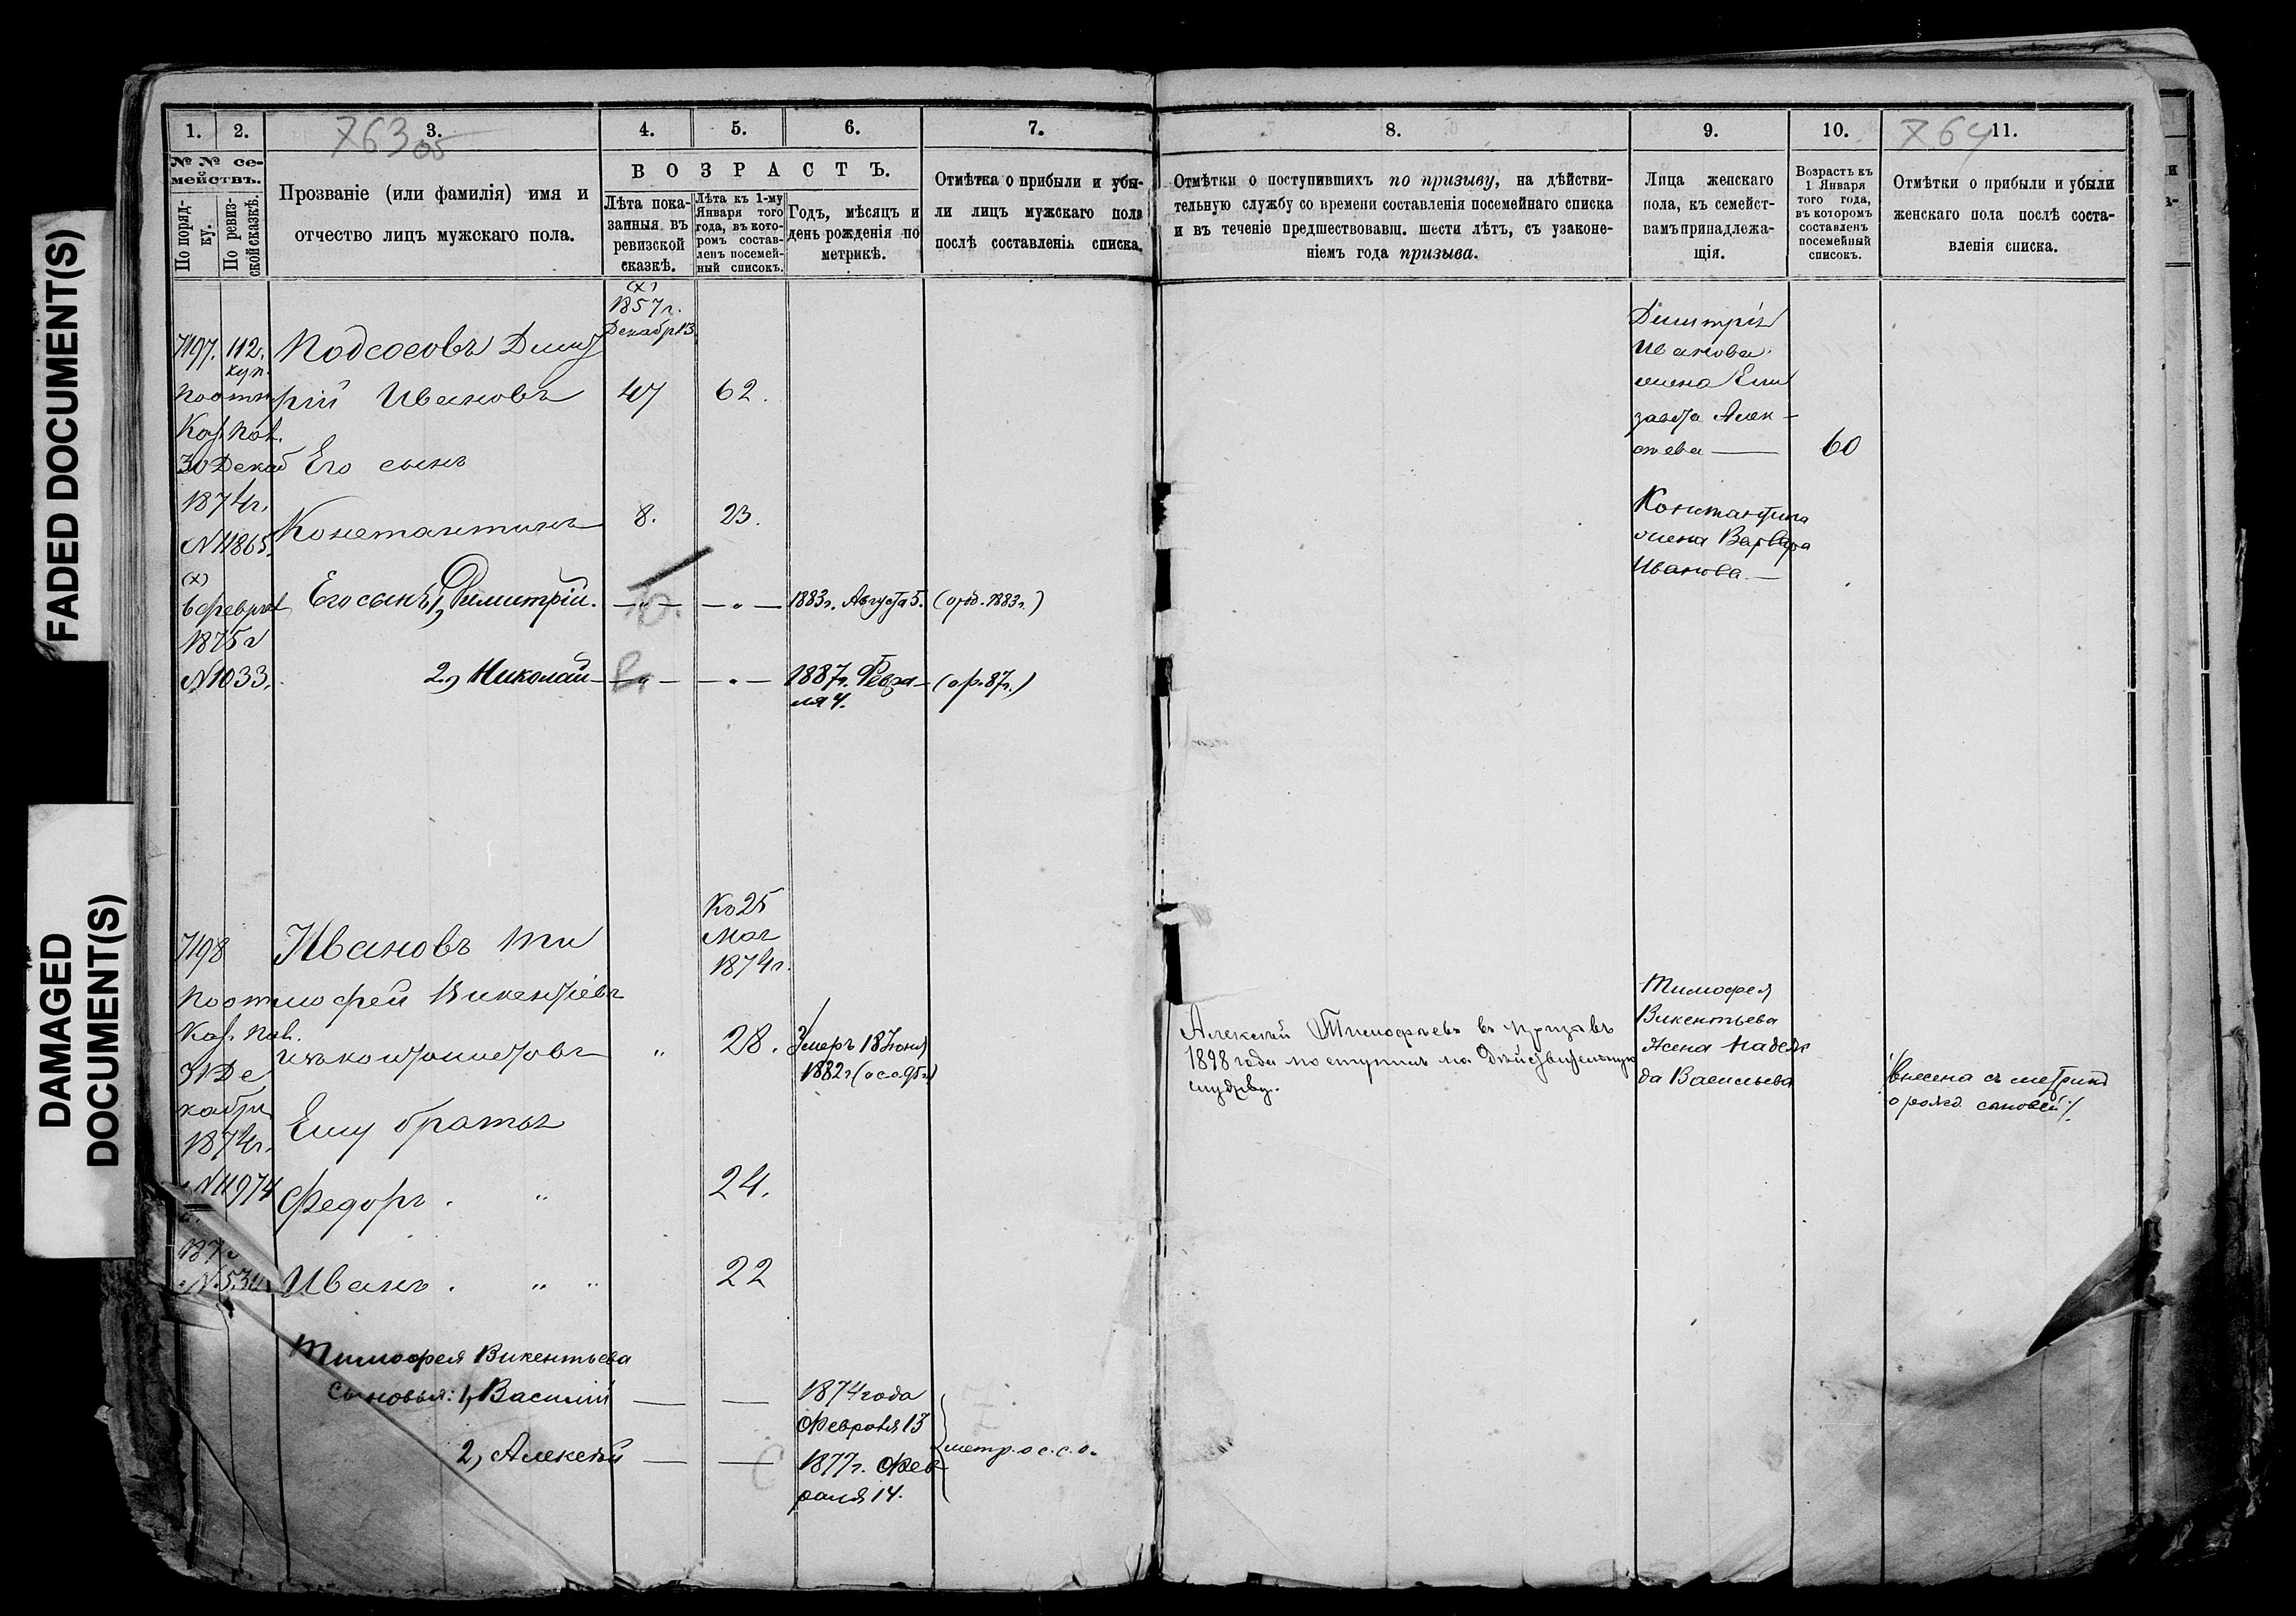 FADED DOCUMENT(S)
DAMAGED
DOCUMENT(S)
763
764
1. 2. 3. 4. 5. 6. 7.
№ № се-
мействъ.
По поряд-
ку.
По ревиз-
ской сказкѣ.
Прозваніе (или фамилія) имя и
отчество лицъ мужскаго пола.
ВОЗРАСТЪ.
Лѣта пока-
занныя въ
ревизской
сказкѣ.
Лѣта къ 1-му
Января того
года, въ кото-
ромъ состав-
ленъ посемей-
ный списокъ.
Годъ, мѣсяцъ и
день рожденія по
метрикѣ.
Отмѣтка о прибыли и убы-
ли лицъ мужскаго пола
послѣ составленія списка.
(х)
1857 г.
Декабр 13
112. Подсосовъ Дмит
куп.
рій Ивановъ 47 62.
30 Декаб Его сынъ
1874 г.
Константинъ 8. 23.
№ 11865.
(х)
6 февраля Его сынъ 1, Димитрій. — „ — — „ — 1883 г. Августа 5. (отд. 1883 г.)
1875 г
№ 1033. 2, Николай — „ — — „ — 1887 г. Февра- (ор. 87 г.)
ля 4.
Къ 25
Мая
1874 г.
Ивановъ Ти
мофей Викентіевъ
„ 28. Умеръ 18 Іюня
1882 г
31 Де
кабря
1874 г. Ему братья
№ 11974 Федоръ . „ 24.
187 г
№ 534 Иванъ . „ „ 22
Тимофея Викентьева
сыновья: 1, Василій — — 1874 года
Февраля 13
2, Алексѣй — — 1877 г. Фев
раля 14.
метр. о с. с. о.
8. 9. 10. 11.
Отмѣтки о поступившихъ по призыву, на дѣйстви-
тельную службу со времени составленія посемейнаго списка
и въ теченіе предшествовавш. шести лѣтъ, съ узаконе-
ніемъ года призыва.
Лица женскаго
пола, къ семейст-
вамъ принадлежа-
щія.
Возрастъ къ
1 Января
того года,
въ которомъ
составленъ
посемейный
списокъ.
Отмѣтки о прибыли и убыли
женскаго пола послѣ соста-
вленія списка.
Димитрія
Иванова
жена Ели
завета Алек-
сѣева — 60
Константина
жена Варвара
Иванова —
Алексѣй Тимофѣевъ въ призывъ
1898 года поступилъ на дѣйствительную
службу.
Тимофея
Викентьева
жена Надеж
да Васильева
(внесена съ метрикъ
о рожд. сыновей)